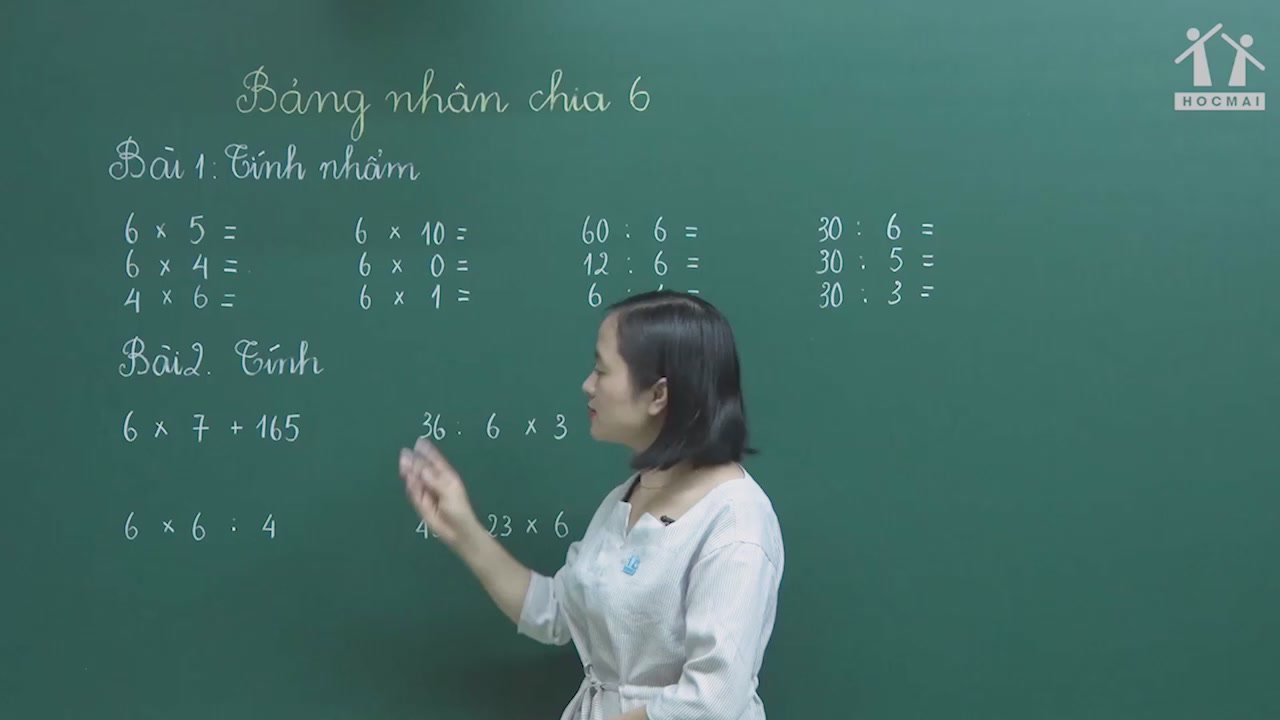 HOCMAI
Bảng nhân chia 6
Bài 1: Tính nhẩm
6 × 5 = 6 × 10 = 60 : 6 = 30 : 6 =
6 × 4 = 6 × 0 = 12 : 6 = 30 : 5 =
4 × 6 = 6 × 1 = 6 : = 30 : 3 =
Bài 2. Tính
6 × 7 + 165 36 : 6 × 3
6 × 6 : 4 23 × 6